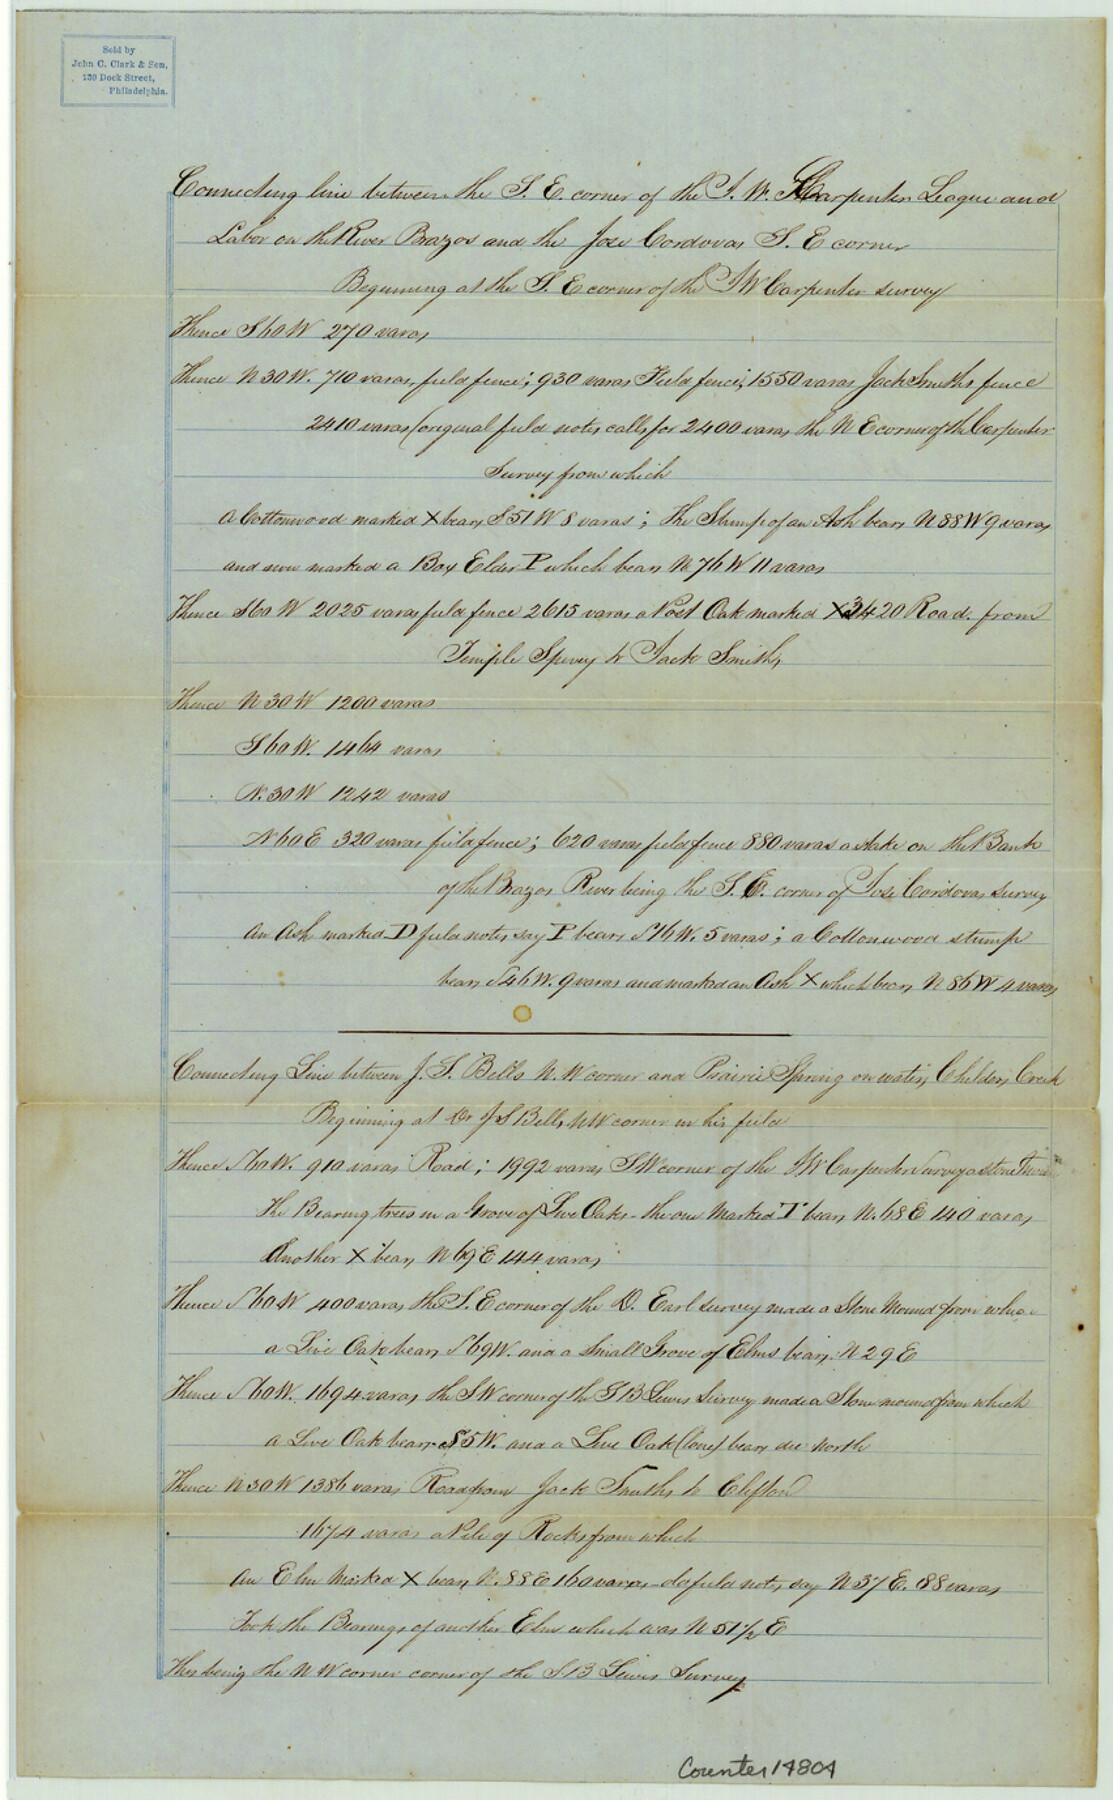 Sold by
John C. Clark & Son,
139 Dock Street,
Philadelphia.
Connecting line between the S. E. corner of the J. W. Carpenter League and
Labor on the River Brazos and the Jose Cordovas S. E corner
Beginning at the S. E corner of the J W Carpenter survey
Thence S 60 W 270 varas
Thence N 30 W. 710 varas, field fence; 930 varas Field fence; 1550 varas Jack Smiths fence
2410 varas (original field notes calls for 2400 varas the N E corner of the Carpenter
Survey from which
a Cottonwood marked X bears S 51 W 8 varas; The Stump of an Ash bears N 88 W 9 varas
and now marked a Box Elder P which bears N 76 W 11 varas
Thence S 60 W 2025 varas field fence 2615 varas a Post Oak marked X 3420 Road. from
Temple Spivey to Jack Smiths
Thence N 30 W 1200 varas
S 60 W. 1464 varas
N. 30 W 1242 varas
N 60 E 320 varas field fence; 620 varas field fence 880 varas a stake on the Bank
of the Brazos River being the S. E. corner of Jose Cordovas survey
An Ash marked D field notes say P bears S 16 W. 5 varas; a Cottonwood stump
bears S 46 W. 9 varas and marked an Ash X which bears N 86 W 4 varas
Connecting Line between J. S. Bells N. W corner and Prairie Spring on waters Childers Creek
Beginning at Dr J S Bells NW corner in his field
Thence S 60 W. 910 varas Road; 1992 varas S W corner of the J W Carpenter Survey a stone Mound
The Bearing trees in a Grove of Live Oaks - the one Marked T bears N. 68 E 140 varas
Another X bears N 69 E 144 varas
Thence S 60 W 400 varas the S. E corner of the D. Earl survey made a Stone Mound from whence
a Live Oak bears S 69 W. and a small Grove of Elms bears. N 29 E
Thence S 60 W. 1694 varas the S W corner of the S B Lewis Survey made a Stone mound from which
a Live Oak bears S 5 W. and a Live Oak (lone) bears due North
Thence N 30 W 1386 varas Road from Jack Smiths to Clifton
1674 varas a Pile of Rocks from which
An Elm Marked X bears N. 88 E 160 varas - old field notes say N 37 E. 88 varas
Took the Bearings of another Elm which was N 51 1/2 E
This being the N W corner corner of the S B Lewis Survey
Counter 14804